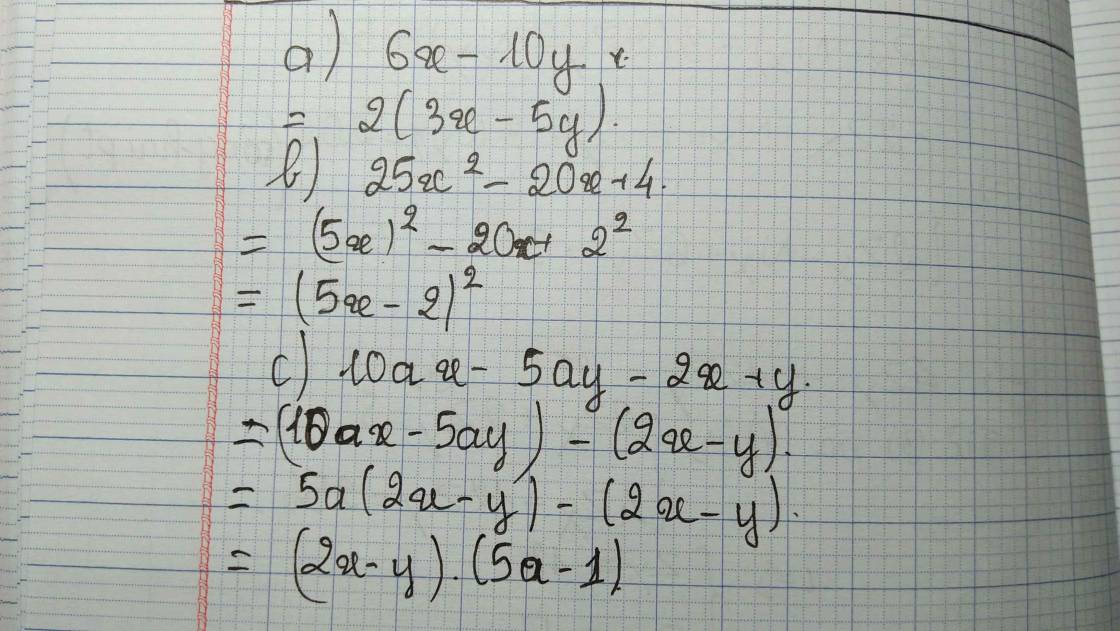 a) 6x - 10y
= 2(3x - 5y).
b) 25x² - 20x + 4.
= (5x)² - 20x + 2²
= (5x - 2)²
c) 10ax - 5ay - 2x + y.
= (10ax - 5ay) - (2x - y).
= 5a(2x - y) - (2x - y).
= (2x - y).(5a - 1)